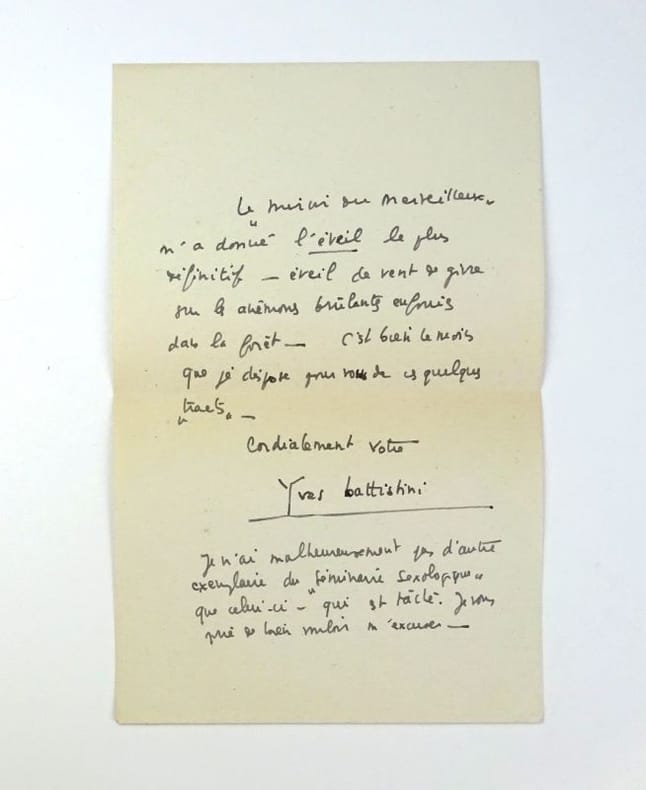 Le miroir du merveilleux"
m'a donné l'éveil le plus
définitif — éveil de vent de givre
sur les anémones brûlants enfouis
dans la forêt — C'est bien le moins
que je dispose pour vous de ces quelques
"tracts" —
Cordialement votre
Yves battistini
Je n'ai malheureusement pas d'autre
exemplaire du "Séminaire Sexologique"
que celui-ci — qui est tâché. Je vous
prie de bien vouloir m'excuser —